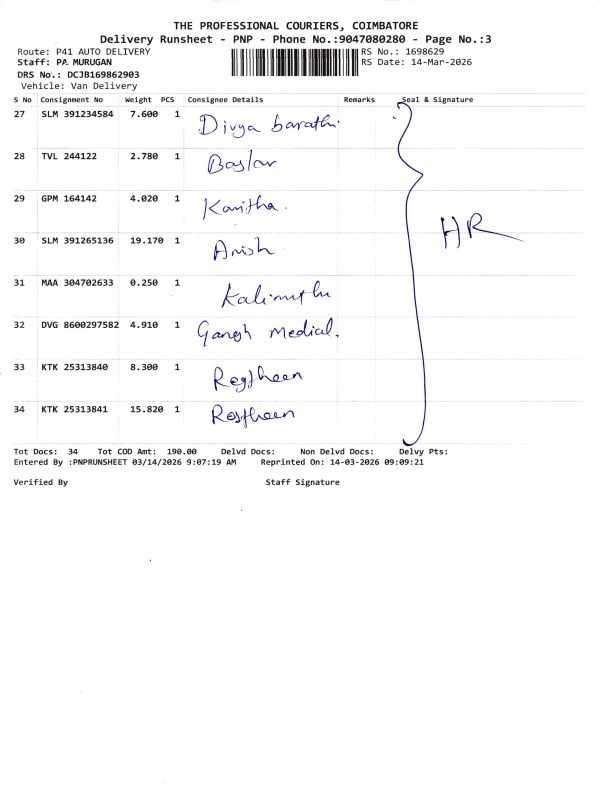 THE PROFESSIONAL COURIERS, COIMBATORE
Delivery Runsheet - PNP - Phone No.:9047080280 - Page No.:3
Route: P41 AUTO DELIVERY
RS No.: 1698629
Staff: PA MURUGAN
RS Date: 14-Mar-2026
DRS No.: DCJB169862903
Vehicle: Van Delivery
S No Consignment No Weight PCS Consignee Details Remarks Seal & Signature
27 SLM 391234584 7.600 1 Divya barathi
28 TVL 244122 2.780 1
29 GPM 164142 4.020 1 Kavitha.
30 SLM 391265136 19.170 1 Anish
31 MAA 304702633 0.250 1 Kalimuthu
32 DVG 8600297582 4.910 1 Medical.
33 KTK 25313840 8.300 1
34 KTK 25313841 15.820 1
HR
Tot Docs: 34 Tot COD Amt: 190.00 Delvd Docs: Non Delvd Docs: Delvy Pts:
Entered By :PNPRUNSHEET 03/14/2026 9:07:19 AM Reprinted On: 14-03-2026 09:09:21
Verified By Staff Signature